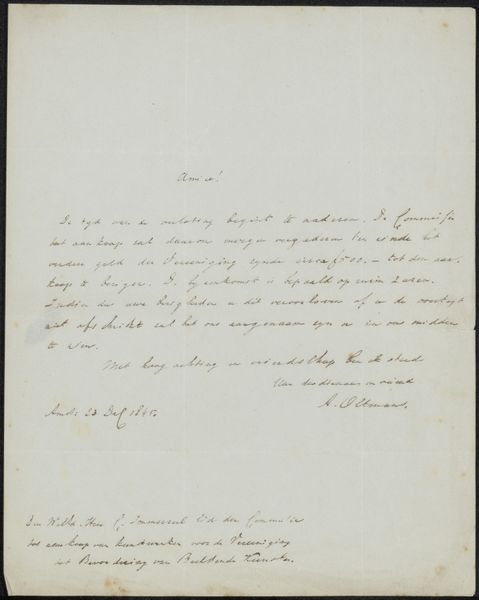 Amice!
De tyd van de verloting begint te naderen. De Commissie
tot aankoop zal daarom morgen vergaderen ten einde het
geld der Vereeniging zynde circa f500,- tot den aan
koop te bezigen. De byeenkomst is bepaald op
Indien uwe bezigheden u dit veroorloven of u de
niet afschrikt zal het ons aangenaam zyn u in ons midden
te zien.
Met hoogachting en vriendschap ben ik steeds
Uw dienaar en vriend
A. Oltmans.
Amst: 23 Dec 1845
Den WelEd. Heer C. Immerzeel Lid der Commissie
tot aankoop van kunstwerken voor de Vereeniging
tot Bevordering van Beeldende Kunsten.